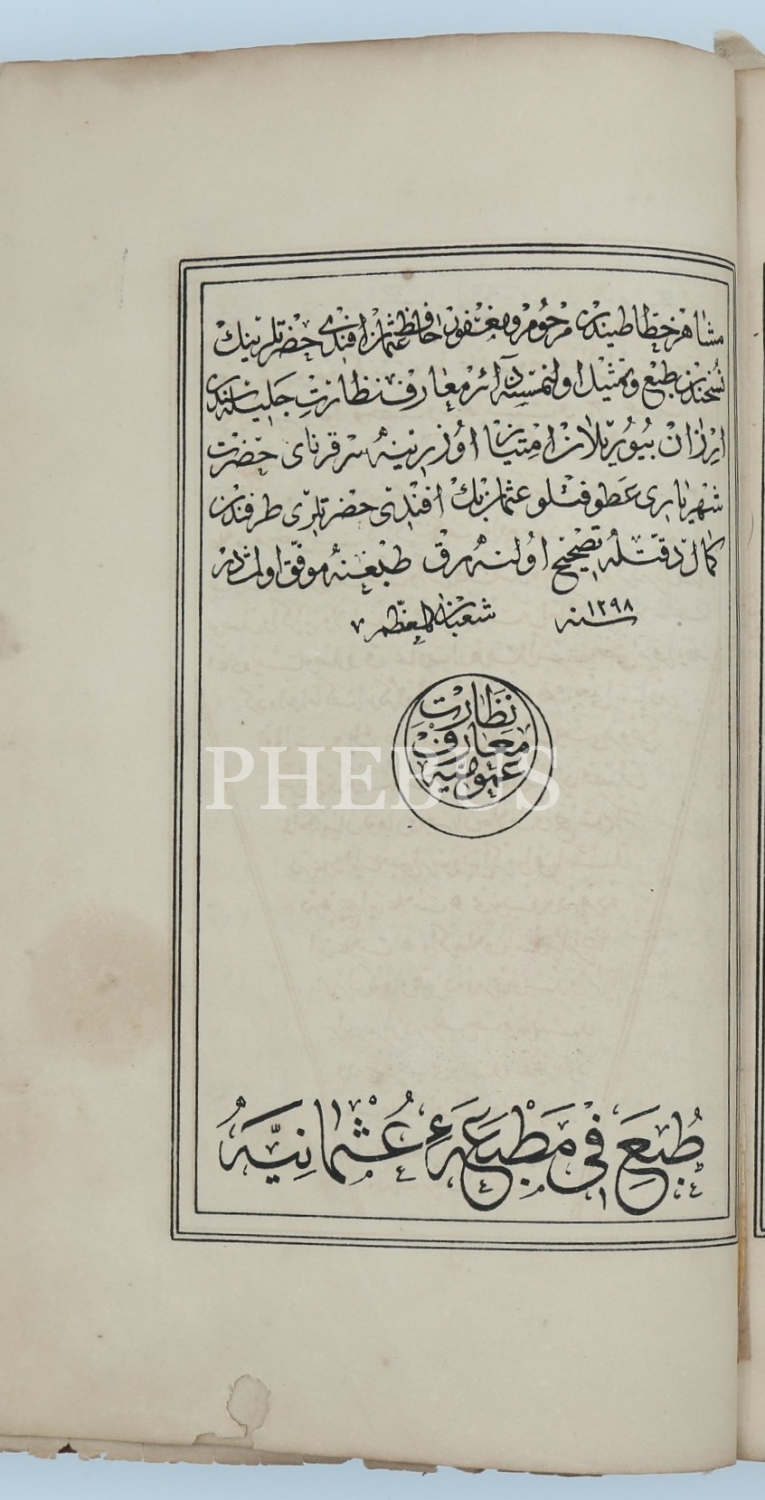 مشاهر خطاطیندن مرحوم و مغفور حافظ عثمان افندی حضرتلرینك
نسخه‌سندن طبع و تمثیل اولنمسنه دائر معارف نظارت جلیله‌سندن
ارزان بیوریلان امتیاز اوزرینه سرقرنای حضرت
شهریاری عطوفتلو عثمان بك افندی حضرتلری طرفندن
كمال دقتله تصحیح اولنه‌رق طبعنه موفق اولمشدر
سنه ۱۲۹۸ شعبان المعظم ۷
نظارت
معارف
عمومیه
PHEBUS
طُبِعَ فِی مَطْبَعَهٔ عُثْمَانِیَّه